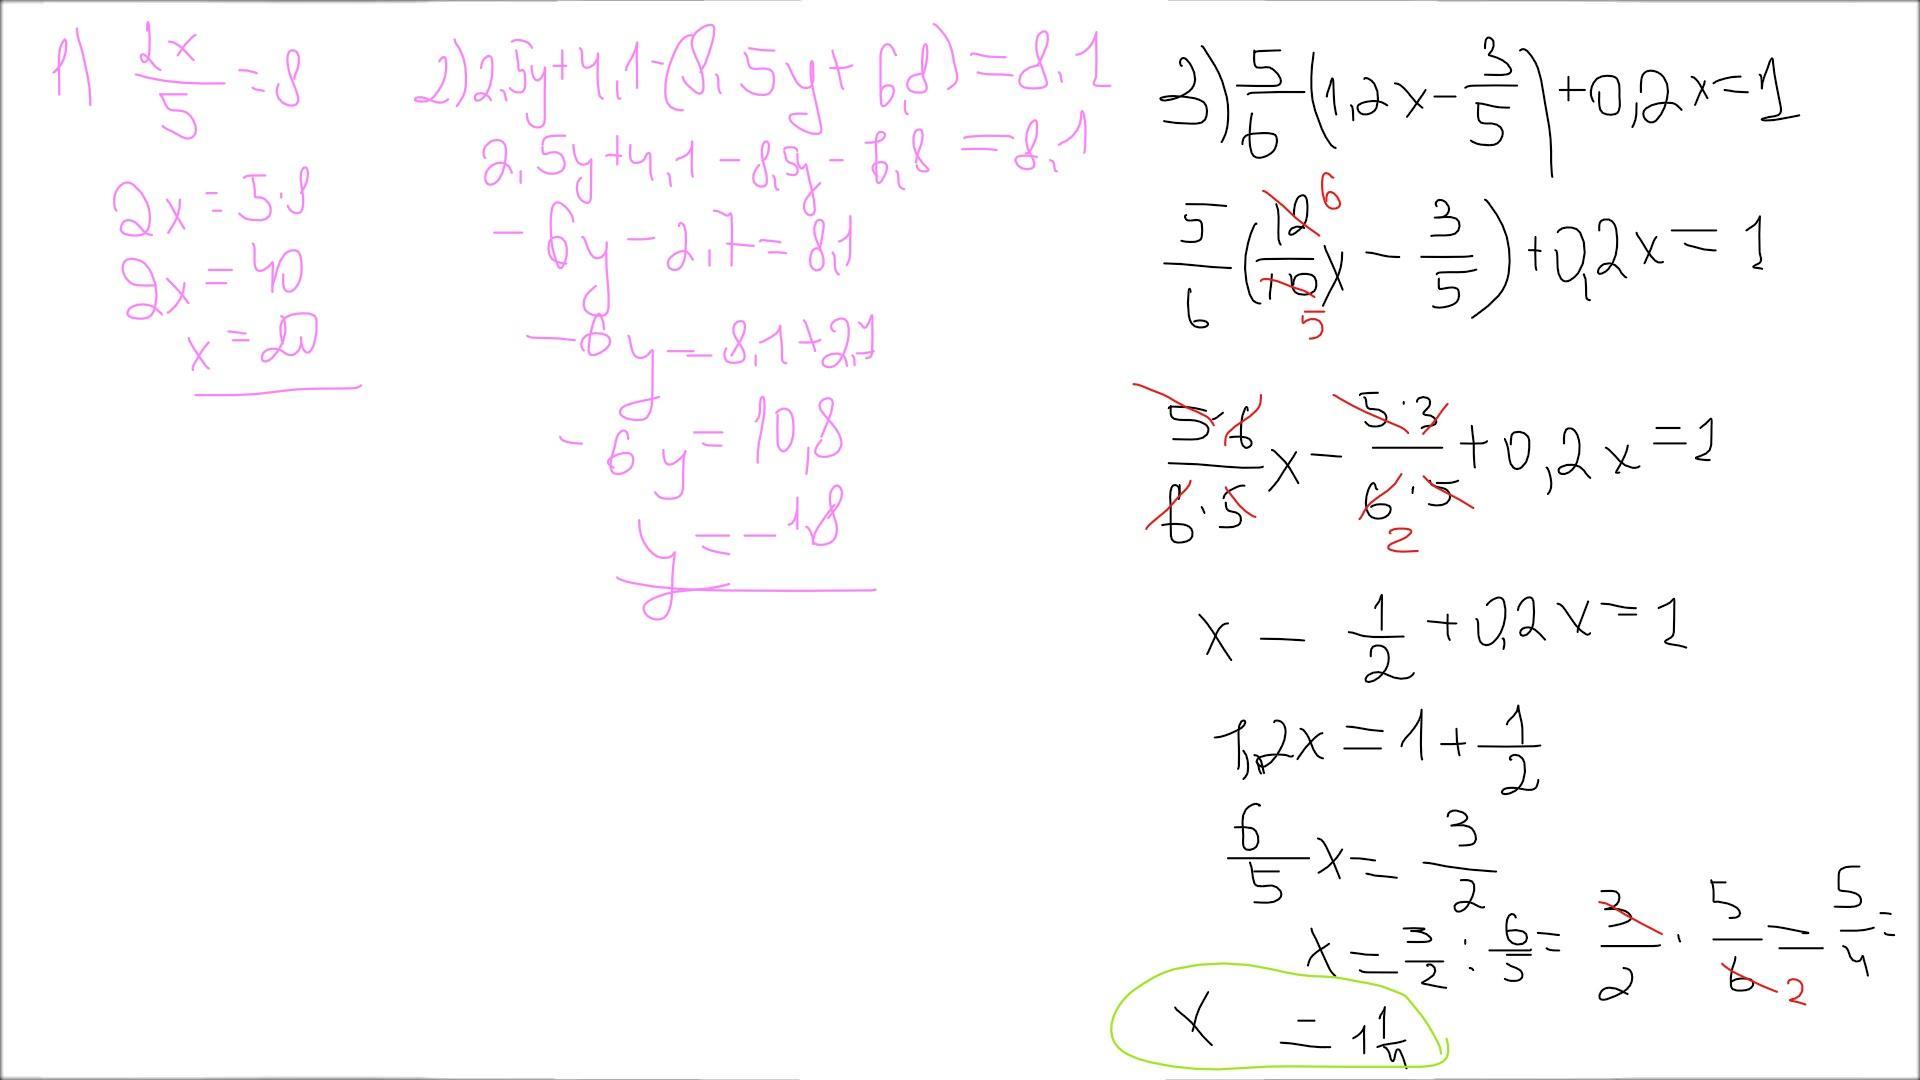 1) 2x/5 = 8
2x = 5·8
2x = 40
x = 20
2) 2,5y+4,1-(8,5y+6,8)=8,1
2,5y+4,1-8,5y-6,8=8,1
-6y-2,7=8,1
-6y=8,1+2,7
-6y=10,8
y=-1,8
3) 5/6(1,2x-3/5)+0,2x=1
5/6(12/10x-3/5)+0,2x=1
6
5
5·6/6·5x-5·3/6·5+0,2x=1
2
x-1/2+0,2x=1
1,2x=1+1/2
6/5x=3/2
x=3/2:6/5=3/2·5/6=5/4=
2
x=1 1/4